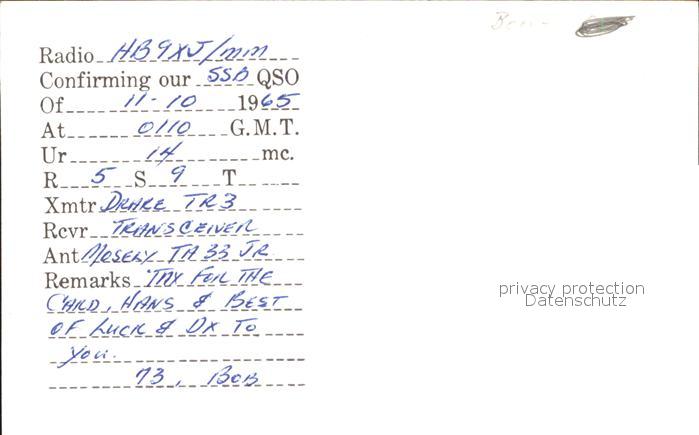 Radio HB9XJ/mm
Confirming our SSB QSO
Of 11-10 1965
At 0110 G.M.T.
Ur 14 mc.
R 5 S 9 T
Xmtr DRAKE TR3
Rcvr TRANSCEIVER
Ant MOSELY TA 33 JR
Remarks TNX FOR THE
CARD, HANS & BEST
OF LUCK & DX TO
you.
73, BOB
privacy protection
Datenschutz